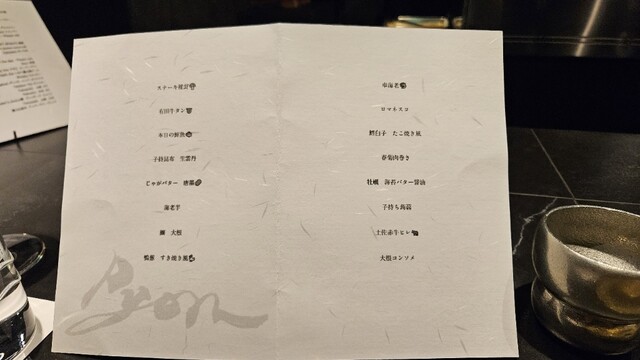 有田牛タン
本日の鮮魚
子持昆布 生雲丹
じゃがバター 唐墨
海老芋
鰤 大根
鴨葱 すき焼き風
車海老
ロマネスコ
鱈白子 たこ焼き風
春菊肉巻き
牡蠣 海苔バター醤油
子持ち蒟蒻
土佐赤牛ヒレ
大根コンソメ